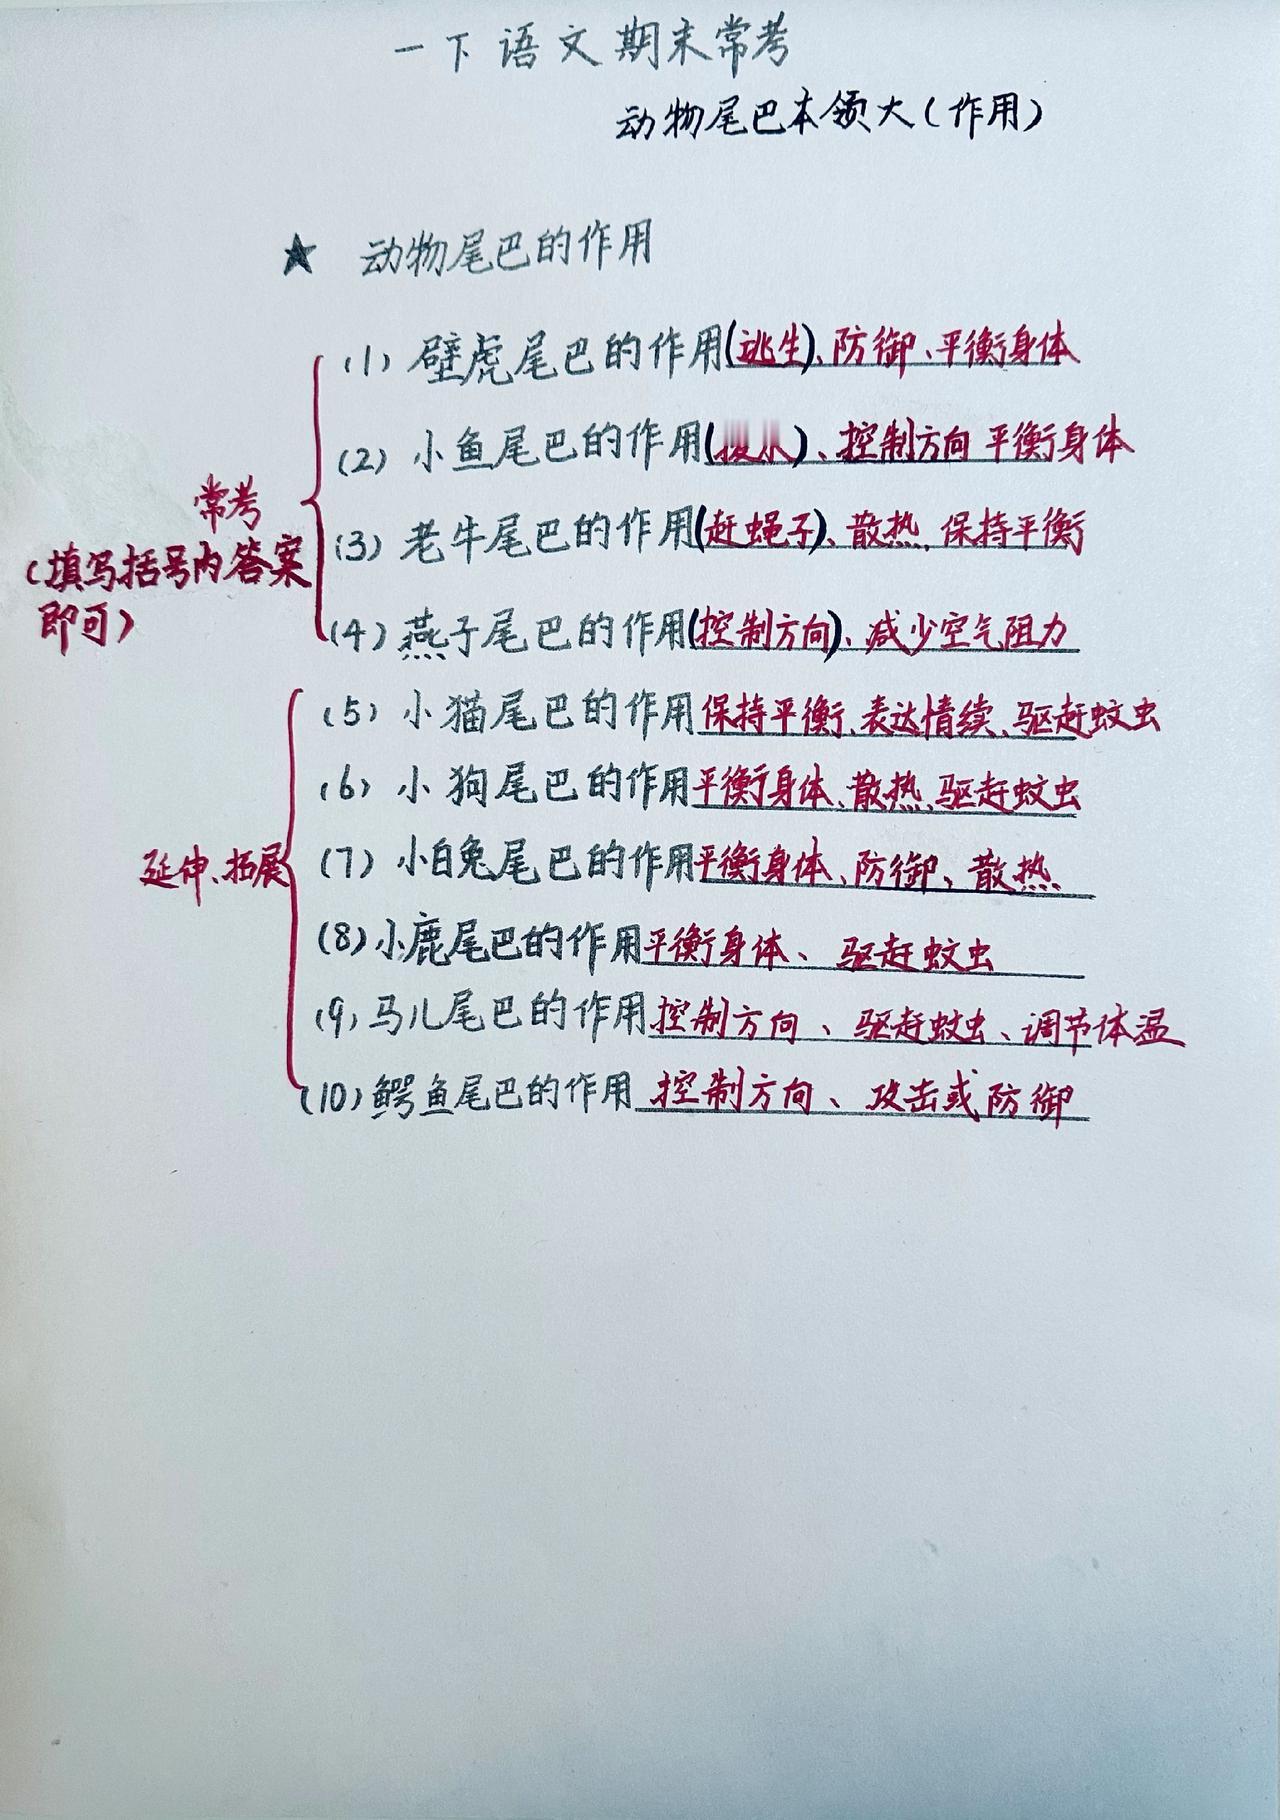 一下语文期末常考
动物尾巴本领大(作用)
★ 动物尾巴的作用
(1) 壁虎尾巴的作用(逃生)、防御、平衡身体
(2) 小鱼尾巴的作用( )、控制方向 平衡身体
(3) 老牛尾巴的作用(赶蝇子)、散热、保持平衡
(4) 燕子尾巴的作用(控制方向)、减少空气阻力
常考
(填写括号内答案
即可)
(5) 小猫尾巴的作用保持平衡、表达情续、驱赶蚊虫
(6) 小狗尾巴的作用平衡身体、散热、驱赶蚊虫
(7) 小白兔尾巴的作用平衡身体、防御、散热
(8) 小鹿尾巴的作用平衡身体、驱赶蚊虫
(9) 马儿尾巴的作用控制方向、驱赶蚊虫、调节体温
(10) 鳄鱼尾巴的作用 控制方向、攻击或防御
延伸、拓展